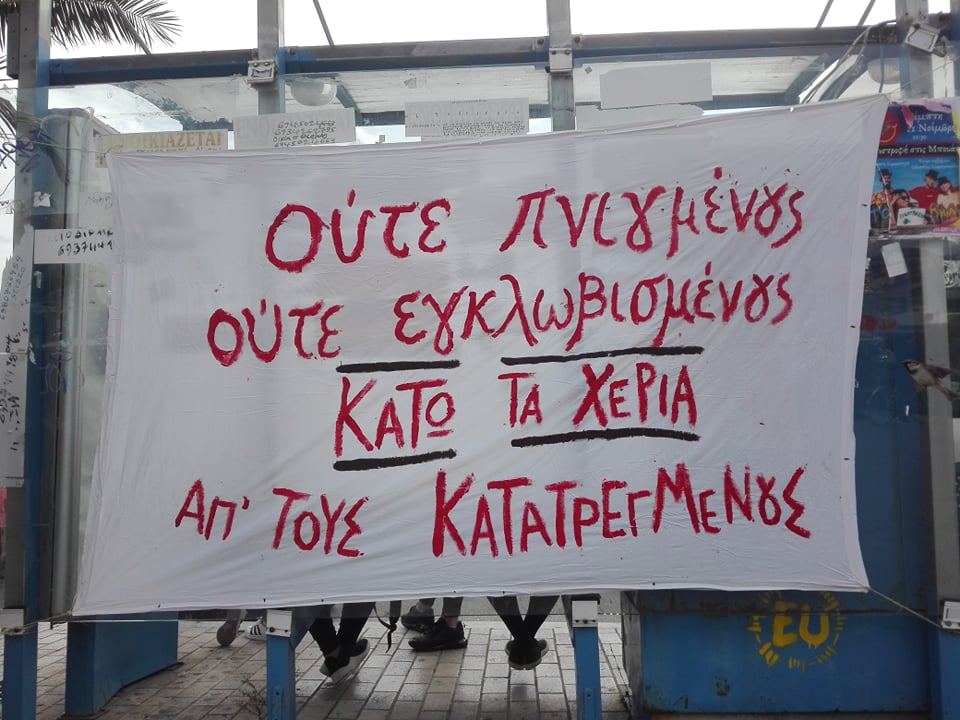 ούτε πνιγμένους
ούτε εγκλωβισμένους
ΚΑΤΩ ΤΑ ΧΕΡΙΑ
ΑΠ' ΤΟΥΣ ΚΑΤΑΤΡΕΓΜΕΝΟΥΣ
EU